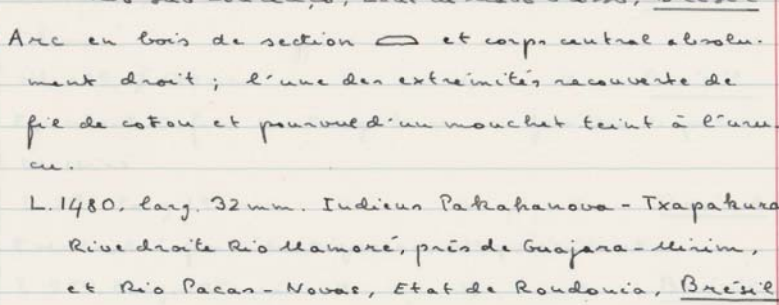 Brésil
Arc en bois de section et corps central absolu-
ment droit ; l'une des extrémités recouverte de
fil de coton et pourvue d'un mouchet teint à l'uru-
cu.
L. 1480. larg. 32 mm. Indiens Pakahanova - Txapakura
Rive droite Rio Mamoré, près de Guajara-Mirim,
et Rio Pacas-Novas, Etat de Rondonia, Brésil